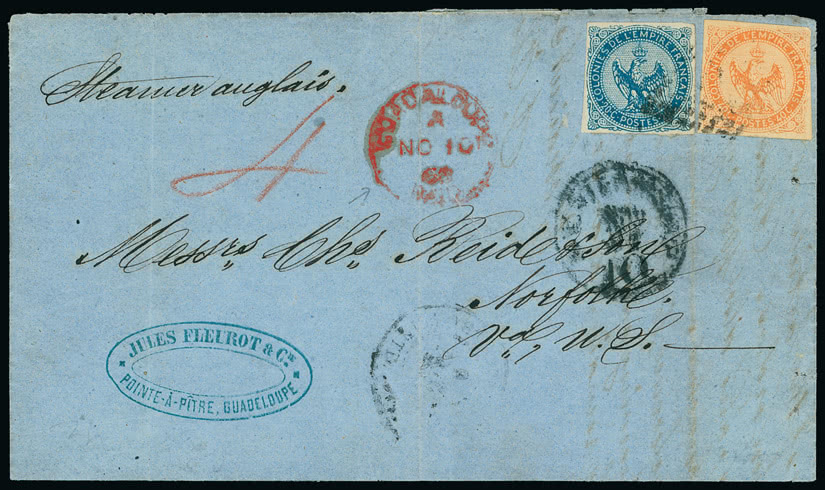 COLONIES DE L'EMPIRE FRANÇAIS
20C. POSTES 20C.
COLONIES DE L'EMPIRE FRANÇAIS
40C. POSTES 40C.
Steamer anglais.
4
GUADALOUPE
A
NO 10
PAID
NEW
10
Messrs Chs Reid & Son
Norfolk.
Va, U.S.
JULES FLEUROT & Cie
POINTE-À-PÎTRE, GUADELOUPE